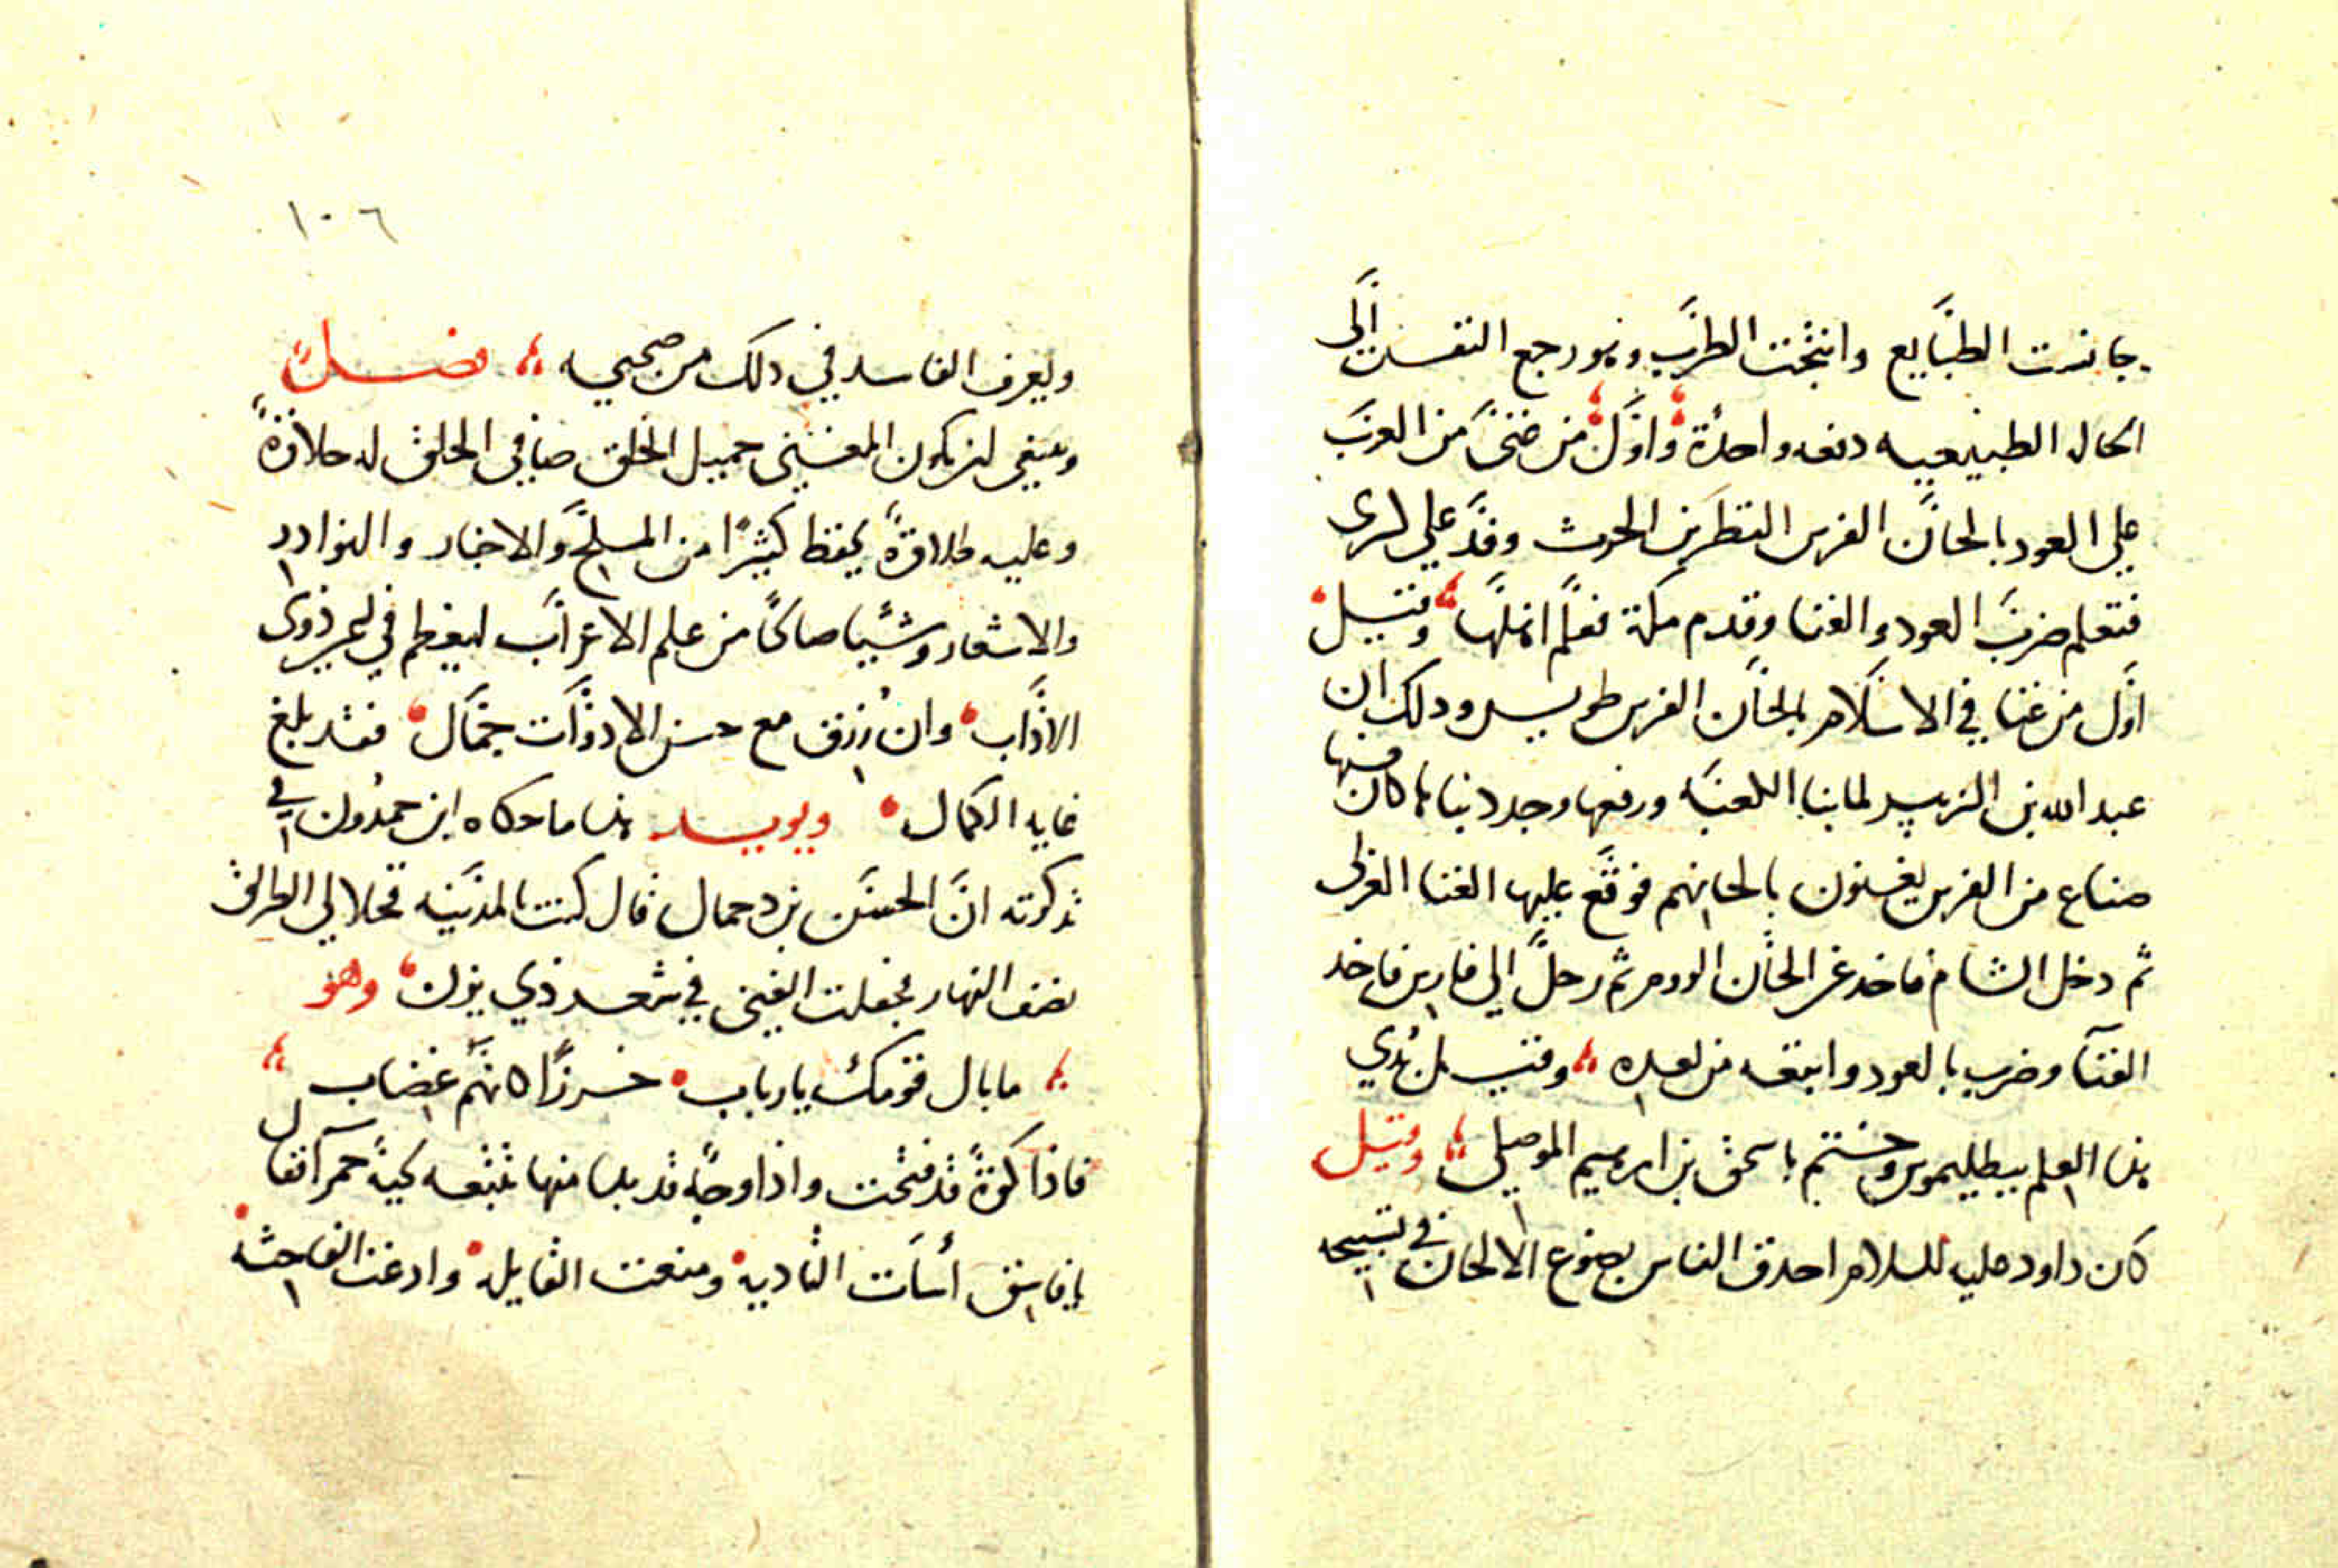 جانست الطبايع وانتجت الطرب وهو رجع النفس الى
الحال الطبيعيه دفعه واحدة واول من غنى من العرب
على العود بالحان الفرس النظر بن الحرث وفد على كسرى
فتعلم ضرب العود والغنا وقدم مكة فعلم اهلها وقيل
اول من غنا في الاسلام بالحان الفرس طويس وذلك ان
عبد الله بن الزبير لما بنا الكعبه ورفعها وجدد بناها كان فيها
صناع من الفرس يغنون بالحانهم فوقع عليها الغنا العربي
ثم دخل الشام فاخد عن الحان الروم ثم رحل الى فارس فاخد
الغنا وضرب بالعود واتبعه من بعده وقيل بدي
هذا العلم ببطليموس وختم باسحق بن ابرهيم الموصلي وقيل
كان داود عليه السلام احدق الناس بصنوع الالحان في تسبيحه
١٠٦
ويعرف الفاسد في دلك من صحيحه فصل
وينبغي ان يكون المغني جميل الخلق صافي الحلق له حلاوة
وعليه طلاوة يحفظ كثيرا من الملح والاخبار والنوادر
والاشعار وشيا صالحا من علم الاعراب لينظم في ذوى
الاداب وان رزق مع حسن الادوات جمال فقد بلغ
غايه الكمال ويويد هذا ما حكاه ابن حمدون في
تدكرته ان الحسن بن دحمال قال كنت بالمدينه فخلا لي الطريق
نصف النهار فجعلت اتغنى في شعر ذي يزن وهو
ما بال قومك يا رباب خزرا كانهم غضاب
فاذا كوة قد فتحت واذا وجه قد بدا منها تتبعه لحية حمرا فقال
يا فاسق أسات التاديه ومنعت القايله وادعت الفاحشه